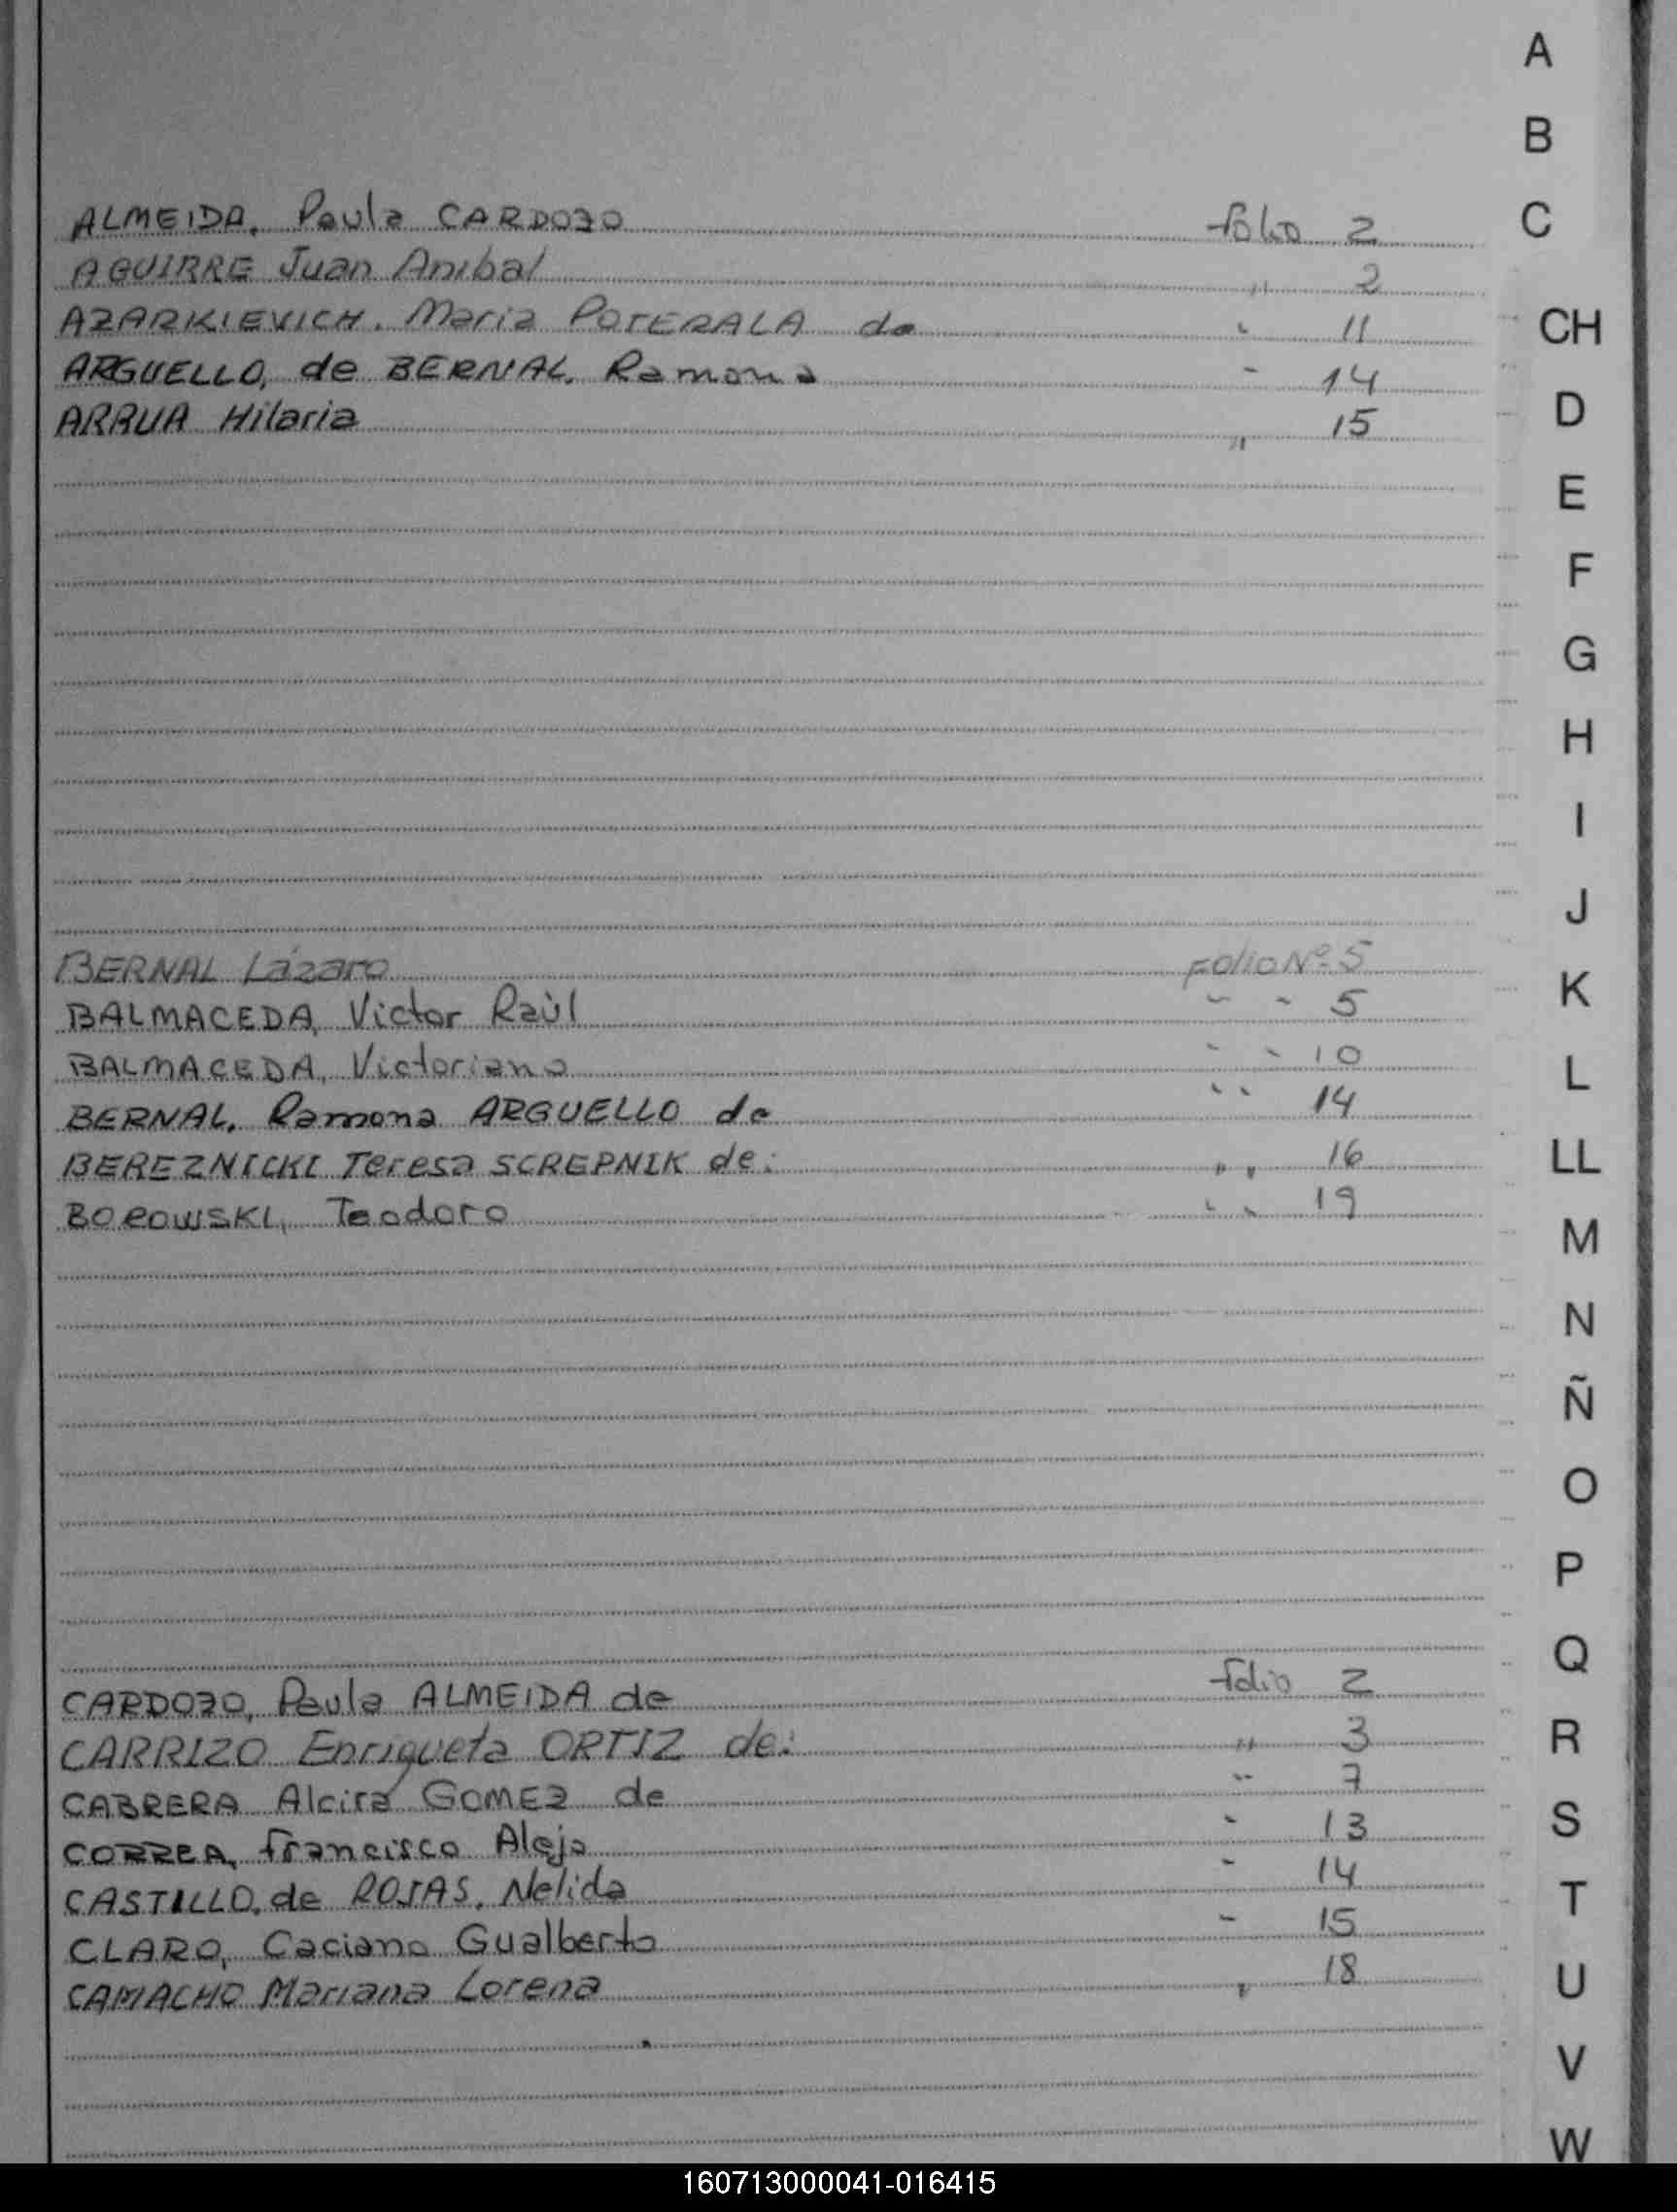 ALMEIDA, Paula CARDOZO folio 2
AGUIRRE Juan Anibal " 2
AZARKIEVICH, Maria POTERALA de " 11
ARGUELLO, de BERNAL, Ramona " 14
ARRUA Hilaria " 15
BERNAL Lázaro FOLIO Nº 5
BALMACEDA, Victor Raùl " " 5
BALMACEDA, Victoriano " " 10
BERNAL, Ramona ARGUELLO de " " 14
BEREZNICKI Teresa SCREPNIK de: " " 16
BOROWSKI, Teodoro " " 19
CARDOZO, Paula ALMEIDA de folio 2
CARRIZO Enriqueta ORTIZ de: " 3
CABRERA Alcira GOMEZ de " 7
CORREA, Francisco Alejo " 13
CASTILLO, de ROJAS, Nelida " 14
CLARO, Caciano Gualberto " 15
CAMACHO Mariana Lorena " 18
A
B
C
CH
D
E
F
G
H
I
J
K
L
LL
M
N
Ñ
O
P
Q
R
S
T
U
V
W
160713000041-016415